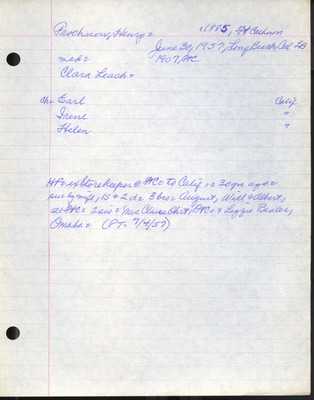 Prochnow, Henry = c1885, Ft Calhoun
June 30, 1957, Long Beach Cal
med = 1907, FtC
Clara Leach =
ch: Earl Calif
Irene "
Helen "
HP = ex Storekeeper @ FtC = To Calif, a 30 yrs ago =
sur by wife, 1S + 2 d = 3 bros August, Will & Albert,
all FtC = 2 sis = Mrs Clara Ohrt, FtC = & Lizzie Beales,
Omaha = (PT - 7/4/57)